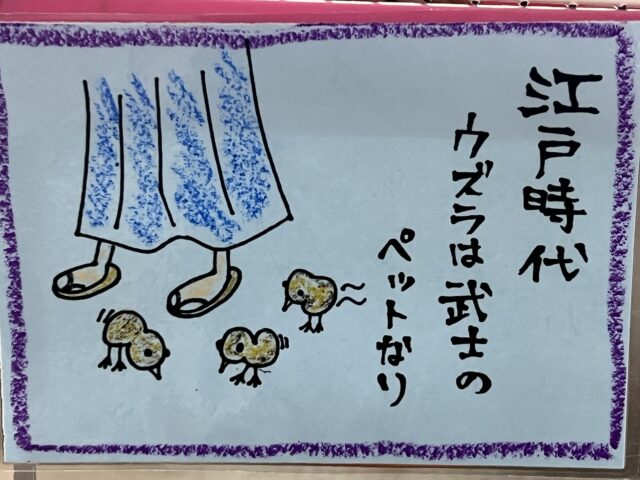 江戸時代
ウズラは武士の
ペットなり